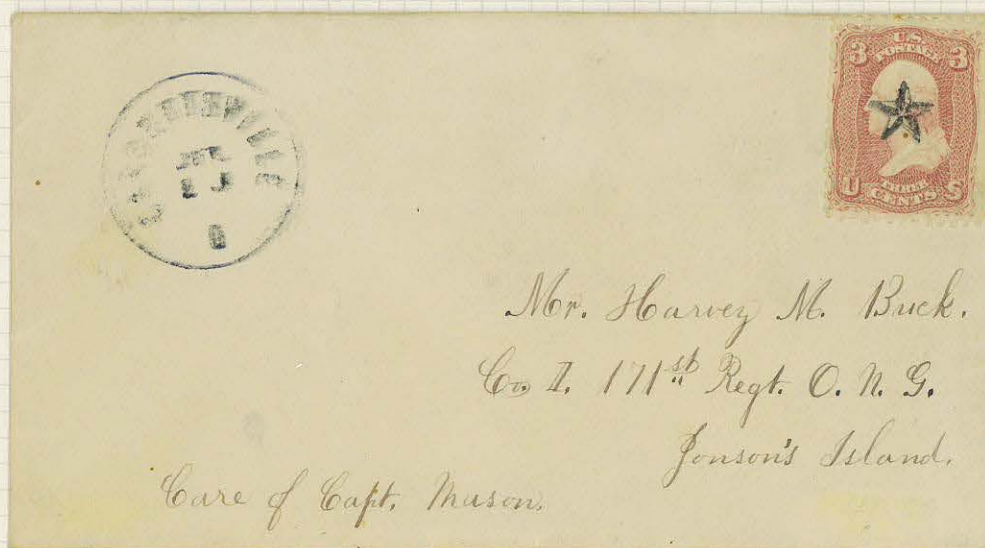 U.S.
POSTAGE
3 3
U THREE S
CENTS
JUL
O
Mr. Harvey M. Buck.
Co. I. 171st Regt. O. N. G.
Jonson's Island.
Care of Capt. Mason.